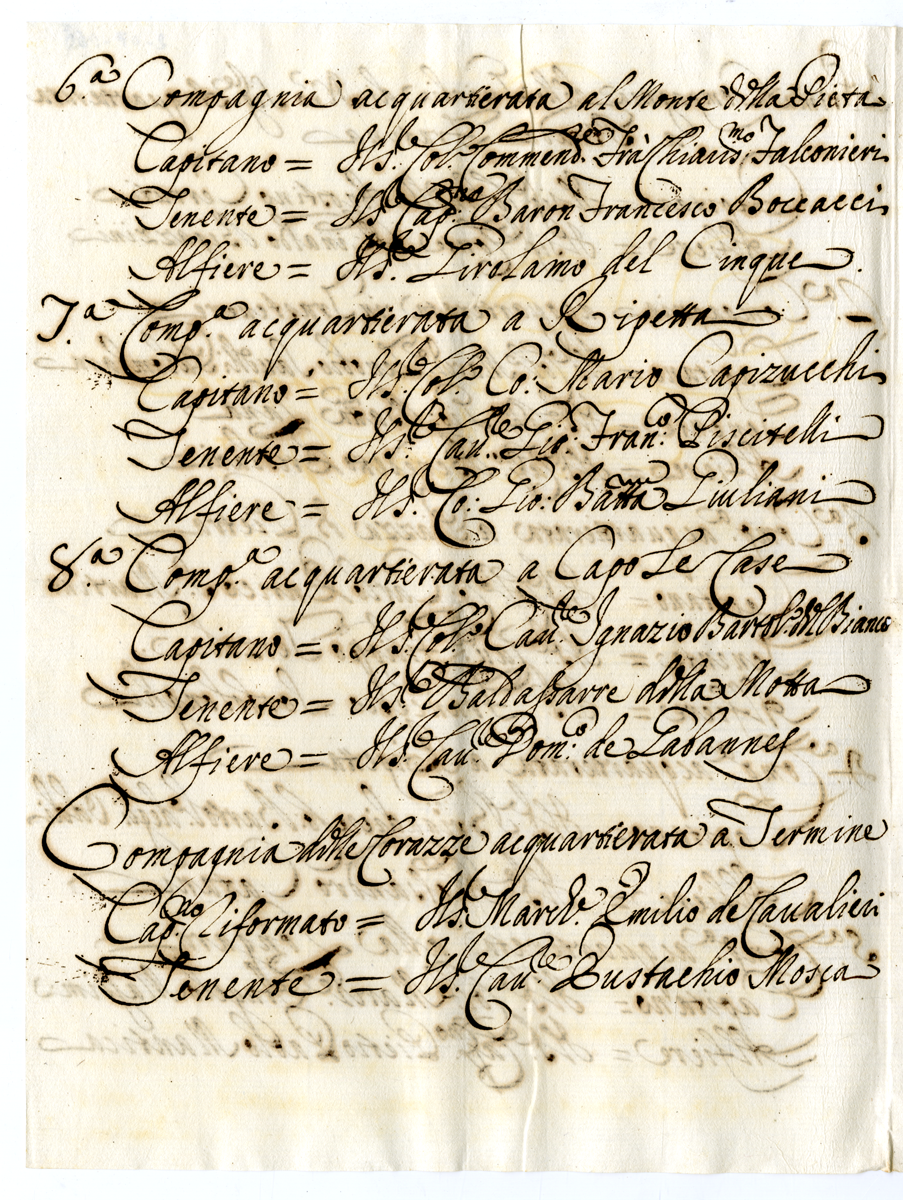 6.ª Compagnia acquartierata al Monte della Pietà
Capitano = Il S.r Col.o Commend.re Frà Chiaris.mo Falconieri
Tenente = Il S.r Cap.no Baron Francesco Boccacci
Alfiere = Il S.r Girolamo del Cinque
7.ª Comp.ª acquartierata a Ripetta
Capitano = Il S.r Col.o Co: Mario Capizucchi
Tenente = Il S.r Cau.re Gio: Fran.o Piscitelli
Alfiere = Il S.r Co: Gio: Batta Giuliani
8.ª Comp.ª acquartierata a Capo Le Case
Capitano = Il S.r Col.o Cau.re Ignazio Bartol.o del Bianco
Tenente = Il S.r Baldassarre della Motta
Alfiere = Il S.r Cau.re Dom.o de Gabannes
Compagnia delle Corazze acquartierata a Termine
Cap.no Riformato = Il S.r March.e Emilio de Caualieri
Tenente = Il S.r Cau.re Eustachio Mosca